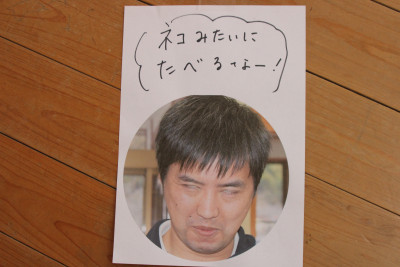 ネコみたいに
たべるなー！